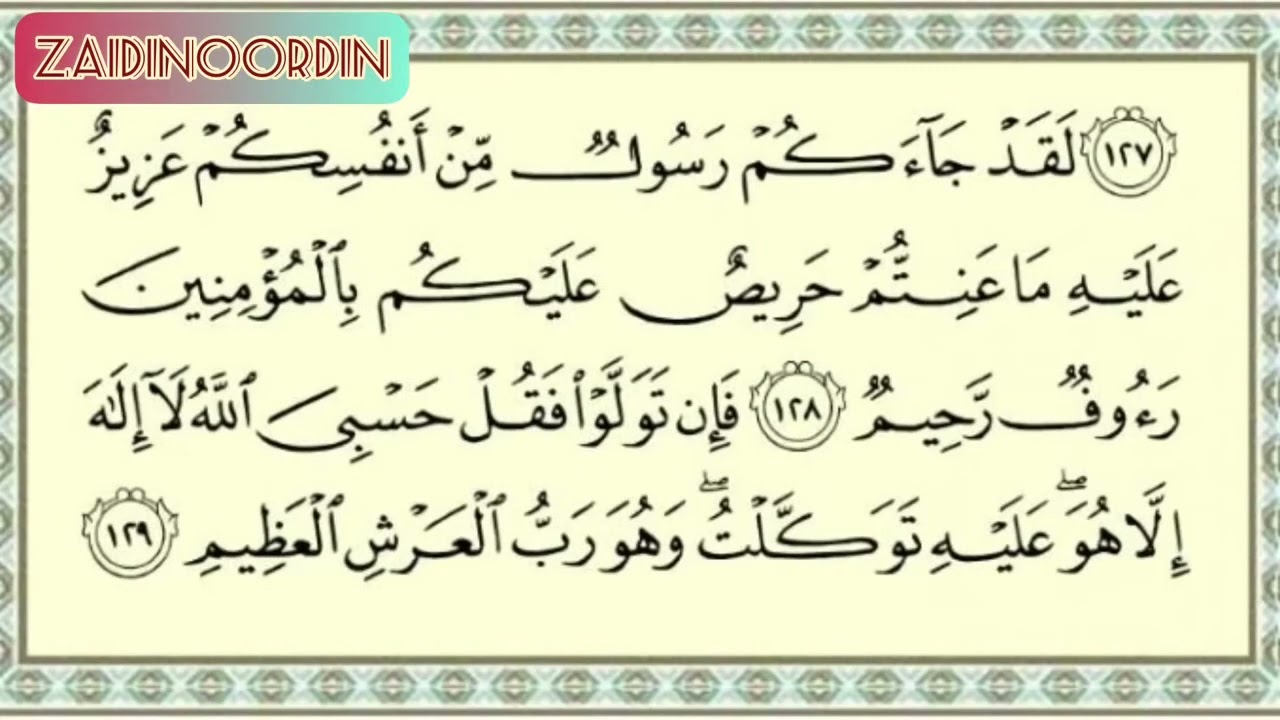 ZAIDINOORDIN
١٢٧ لَقَدْ جَآءَكُمْ رَسُولٌ مِّنْ أَنفُسِكُمْ عَزِيزٌ
عَلَيْهِ مَا عَنِتُّمْ حَرِيصٌ عَلَيْكُم بِٱلْمُؤْمِنِينَ
رَءُوفٌ رَّحِيمٌ ١٢٨ فَإِن تَوَلَّوْا۟ فَقُلْ حَسْبِىَ ٱللَّهُ لَآ إِلَٰهَ
إِلَّا هُوَ ۖ عَلَيْهِ تَوَكَّلْتُ ۖ وَهُوَ رَبُّ ٱلْعَرْشِ ٱلْعَظِيمِ ١٢٩